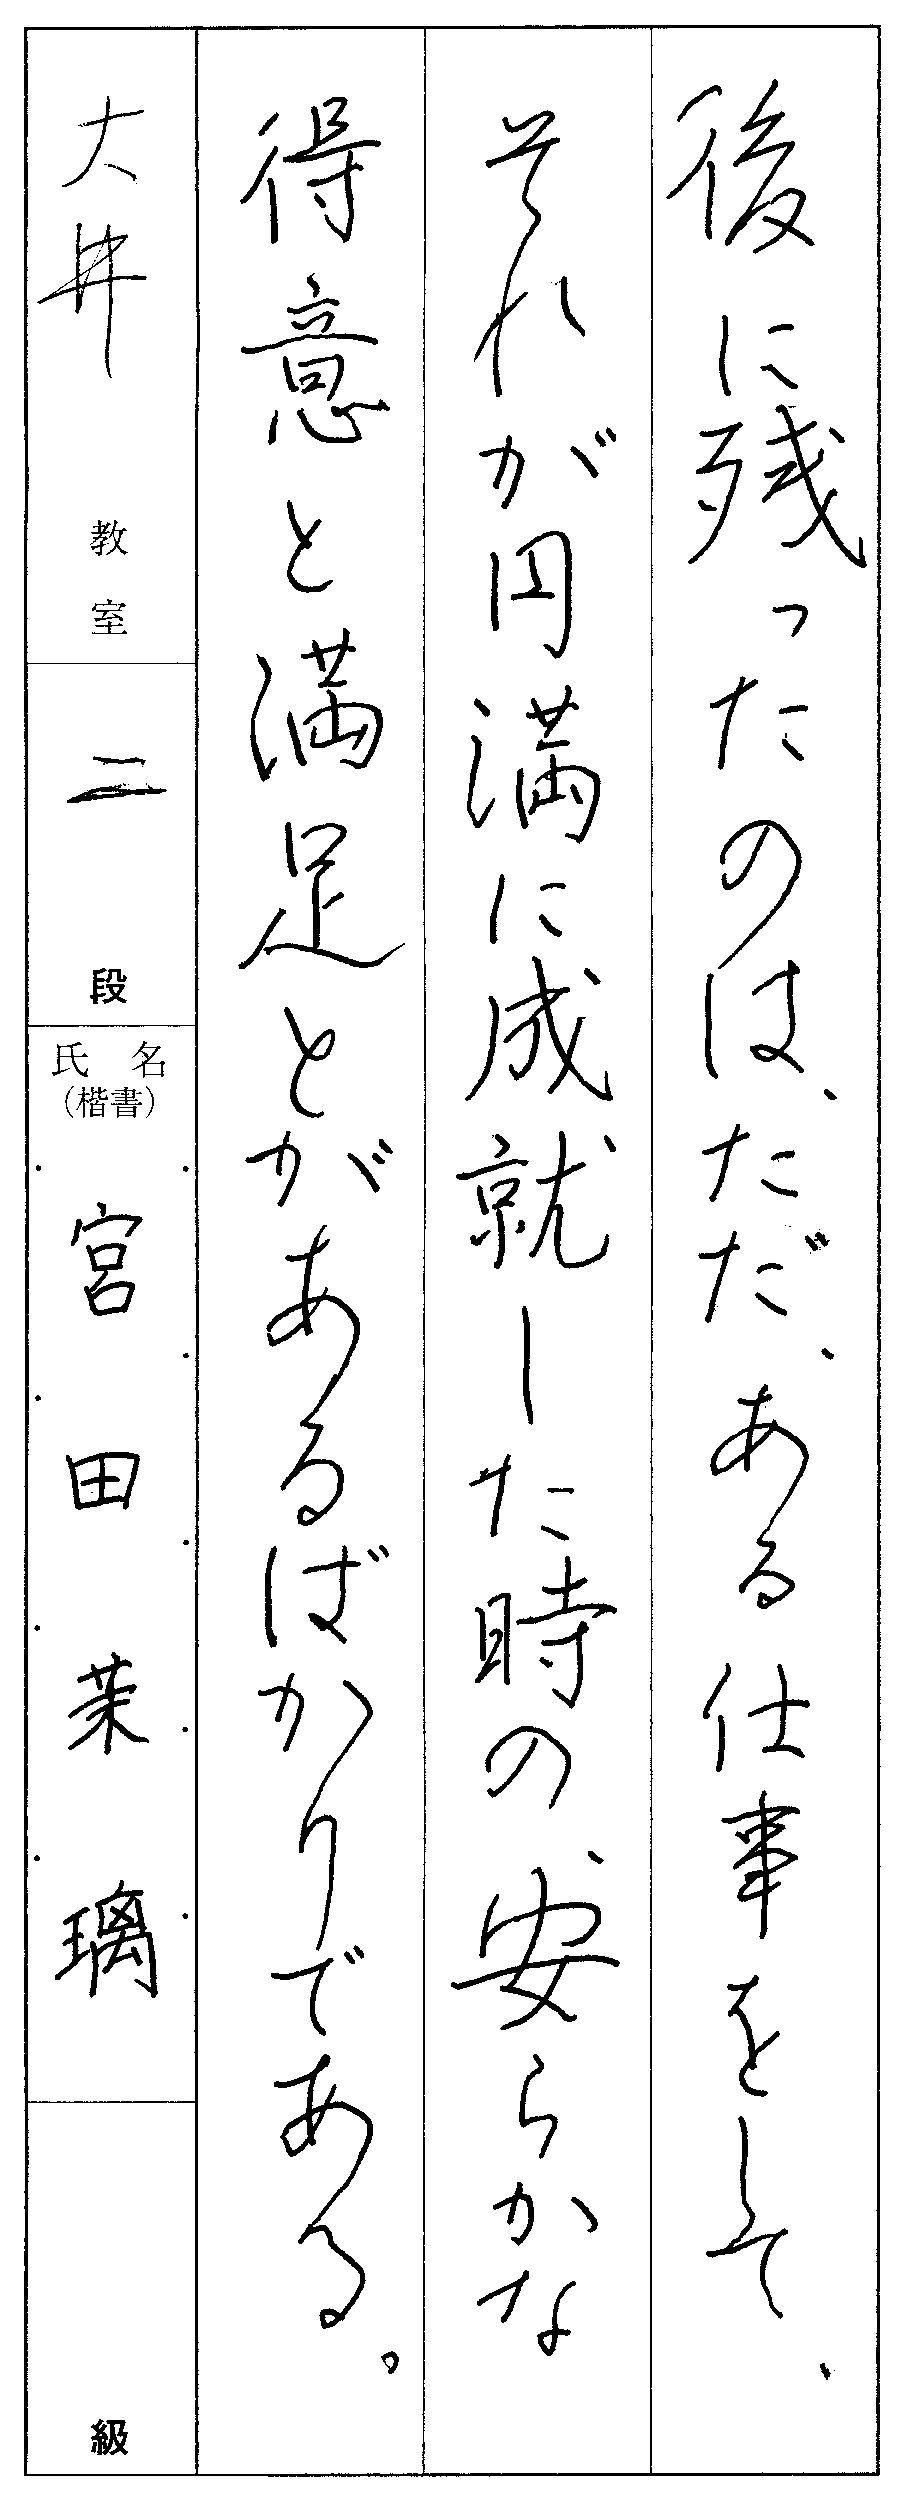 後に残ったのは、ただ、ある仕事をして、
それが円満に成就した時の、安らかな
得意と満足とがあるばかりである。
大井 教室
二 段
氏名
（楷書）
宮田茉璃
級